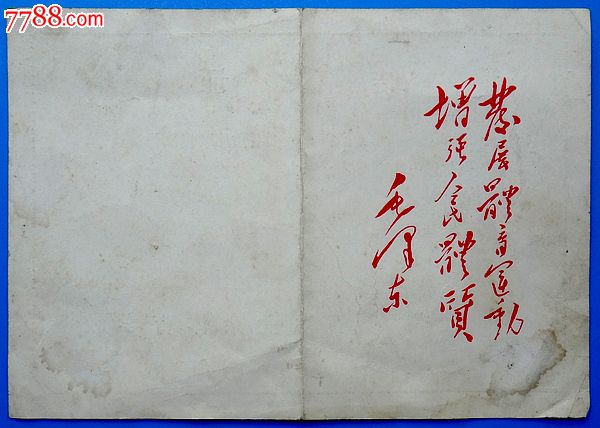 7788.com
發展體育運動
增强人民體質
毛泽东